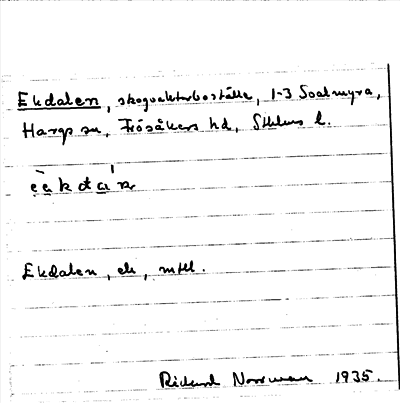 Ekdalen, skogvaktarboställe, 1-3 Soolmyra,
Hargs sn, Frösåkers hd, Sthlms l.
Ekdalen, ek, mtll.
Rickard Norrman 1935.